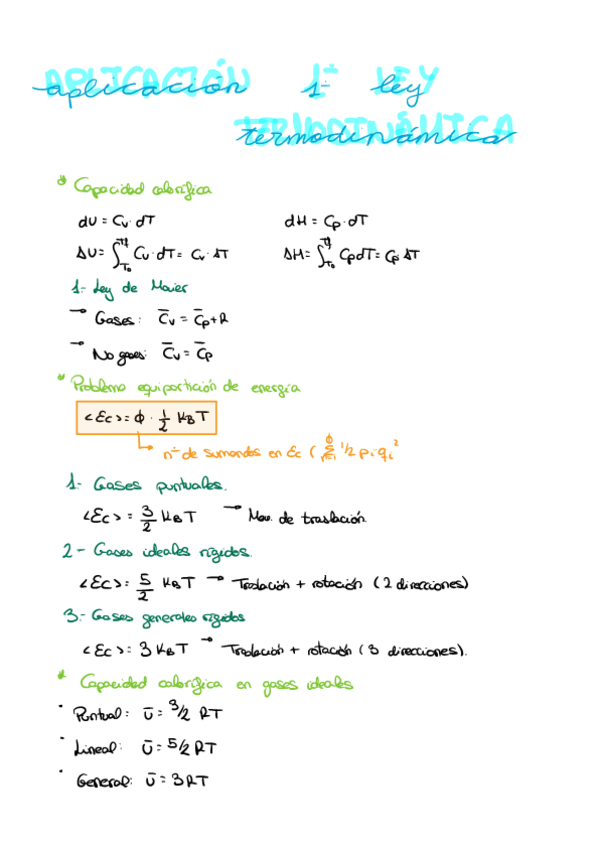 APLICACIÓN 1ª LEY
TERMODINÁMICA
aplicación 1ª ley
termodinámica
* Capacidad calorífica
dU = Cv · dT dH = Cp · dT
ΔU = ∫_{T₀}^{Tf} Cv · dT = Cv · ΔT ΔH = ∫_{T₀}^{Tf} Cp dT = Cp ΔT
1.- Ley de Mayer
→ Gases: C̄v = C̄p + R
→ No gases: C̄v = C̄p
* Problema equipartición de energía
<Ec> = ϕ · 1/2 KBT
nº de sumandos en Ec ( Σ 1/2 pi qi²
1.- Gases puntuales.
<Ec> = 3/2 KBT → Mov. de traslación
2.- Gases ideales rígidos.
<Ec> = 5/2 KBT → Traslación + rotación (2 direcciones)
3.- Gases generales rígidos
<Ec> = 3 KBT → Traslación + rotación (3 direcciones).
* Capacidad calorífica en gases ideales
· Puntual: Ū = 3/2 RT
· Lineal: Ū = 5/2 RT
· General: Ū = 3RT